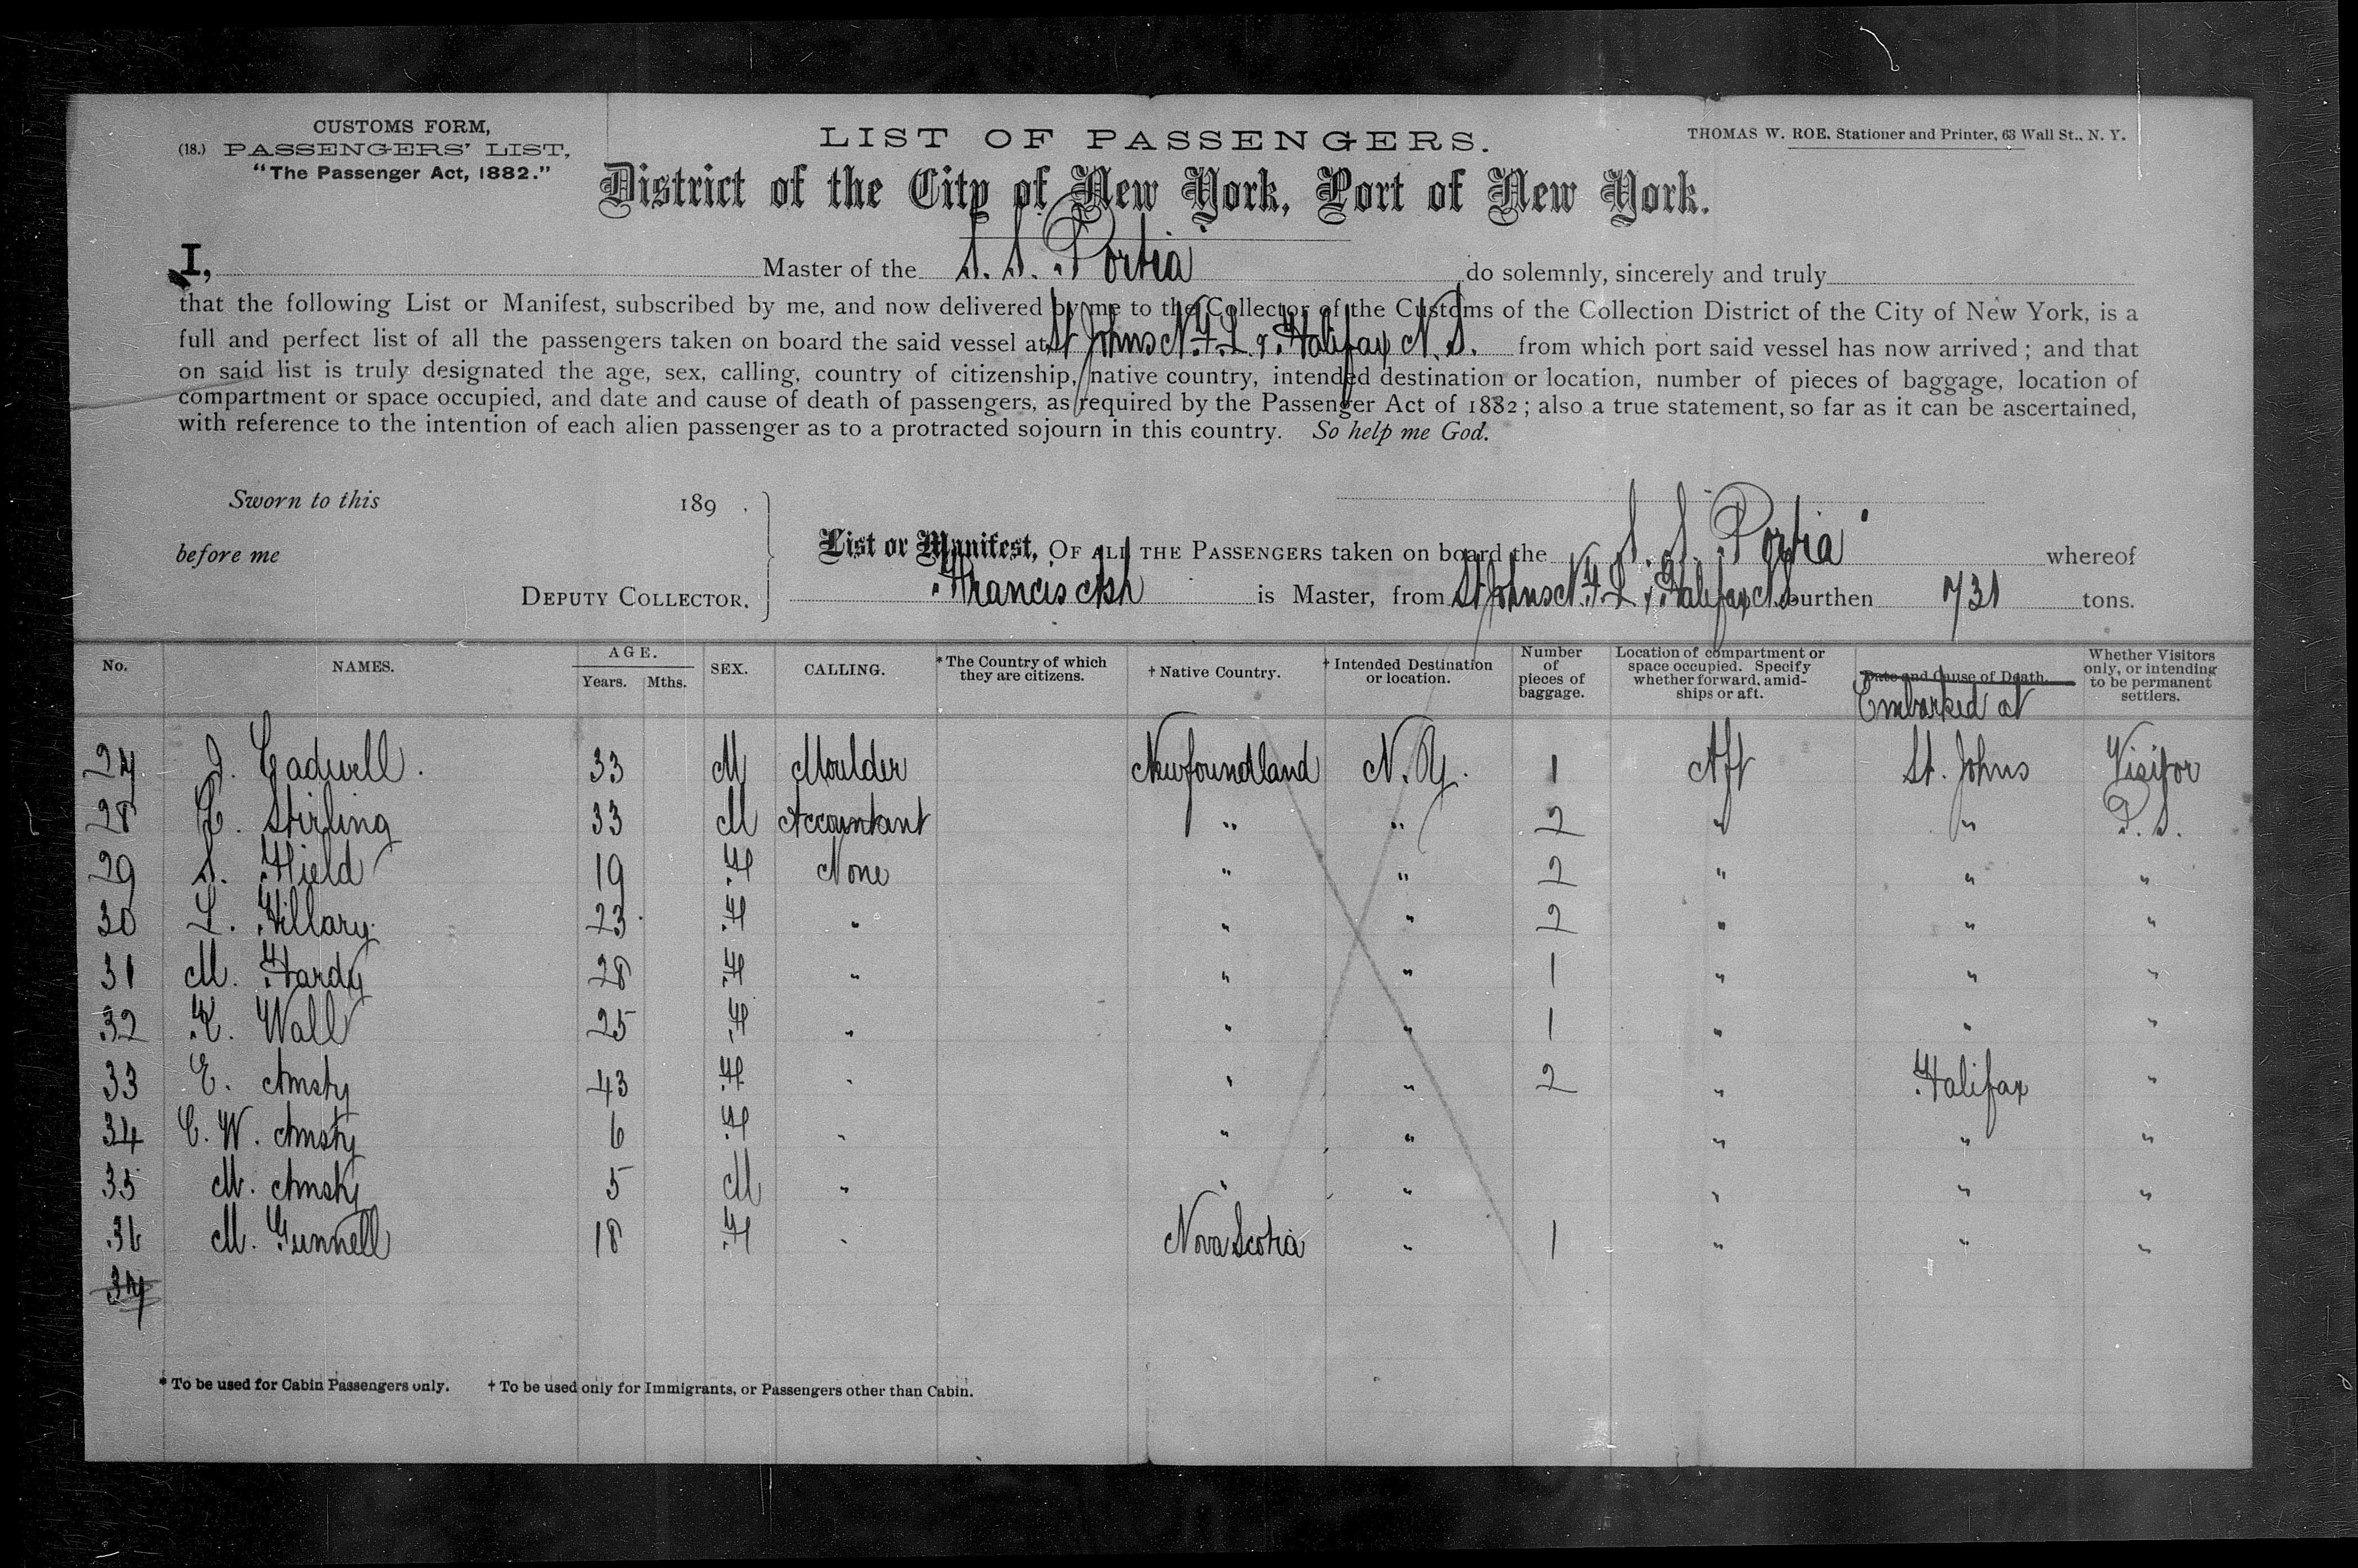 CUSTOMS FORM,
(18.) PASSENGERS' LIST,
"The Passenger Act, 1882."
LIST OF PASSENGERS.
THOMAS W. ROE, Stationer and Printer, 63 Wall St., N. Y.
District of the City of New York, Port of New York.
I, Master of the S. S. Portia do solemnly, sincerely and truly
that the following List or Manifest, subscribed by me, and now delivered by me to the Collector of the Customs of the Collection District of the City of New York, is a
full and perfect list of all the passengers taken on board the said vessel at St Johns N.F.L. & Halifax N.S. from which port said vessel has now arrived; and that
on said list is truly designated the age, sex, calling, country of citizenship, native country, intended destination or location, number of pieces of baggage, location of
compartment or space occupied, and date and cause of death of passengers, as required by the Passenger Act of 1882; also a true statement, so far as it can be ascertained,
with reference to the intention of each alien passenger as to a protracted sojourn in this country. So help me God.
Sworn to this 189 .
before me
DEPUTY COLLECTOR.
List or Manifest, OF ALL THE PASSENGERS taken on board the S. S. Portia whereof
Francis Ash is Master, from St Johns N.F.L. & Halifax N.S. burthen 731 tons.
No. NAMES. AGE. Years. Mths. SEX. CALLING. * The Country of which they are citizens. † Native Country. † Intended Destination or location. Number of pieces of baggage. Location of compartment or space occupied. Specify whether forward, amidships or aft. Date and Cause of Death. Embarked at Whether Visitors only, or intending to be permanent settlers.
27 J. Cadwell. 33 M Moulder Newfoundland N.Y. 1 Aft St. Johns Visitor
28 Stirling 33 M Accountant " " 2 " " P. S.
29 S. Hield 19 F None " " 2 " " "
30 L. Hillary 23 F " " " 2 " " "
31 M. Hardy 28 F " " " 1 " " "
32 K. Wall 25 F " " " 1 " " "
33 E. Ansty 43 F " " " 2 " Halifax "
34 C. W. Ansty 6 F " " " " " "
35 M. Ansty 5 M " " " " " "
36 M. Gunnell 18 F " Nova Scotia " 1 " " "
37
* To be used for Cabin Passengers only. † To be used only for Immigrants, or Passengers other than Cabin.